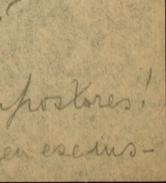 postores!
en exclus-